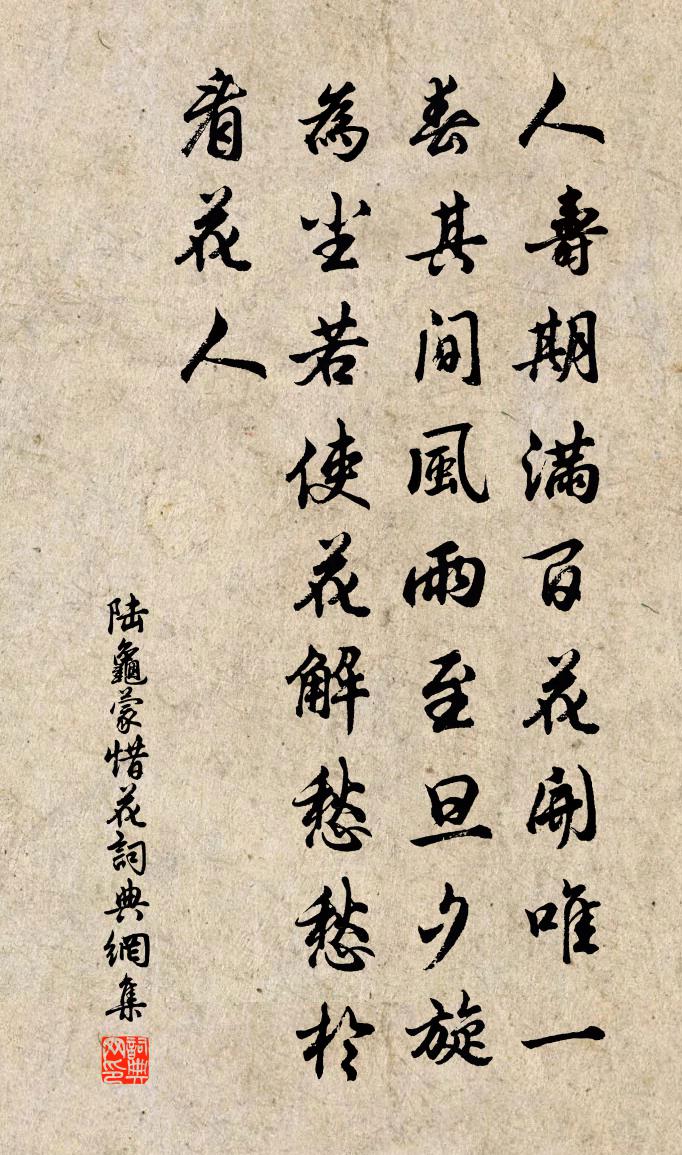 人壽期滿百花開唯一
春其間風雨至旦夕旋
為尘若使花解愁愁於
看花人
陆龜蒙惜花詞典網集
詞典网印